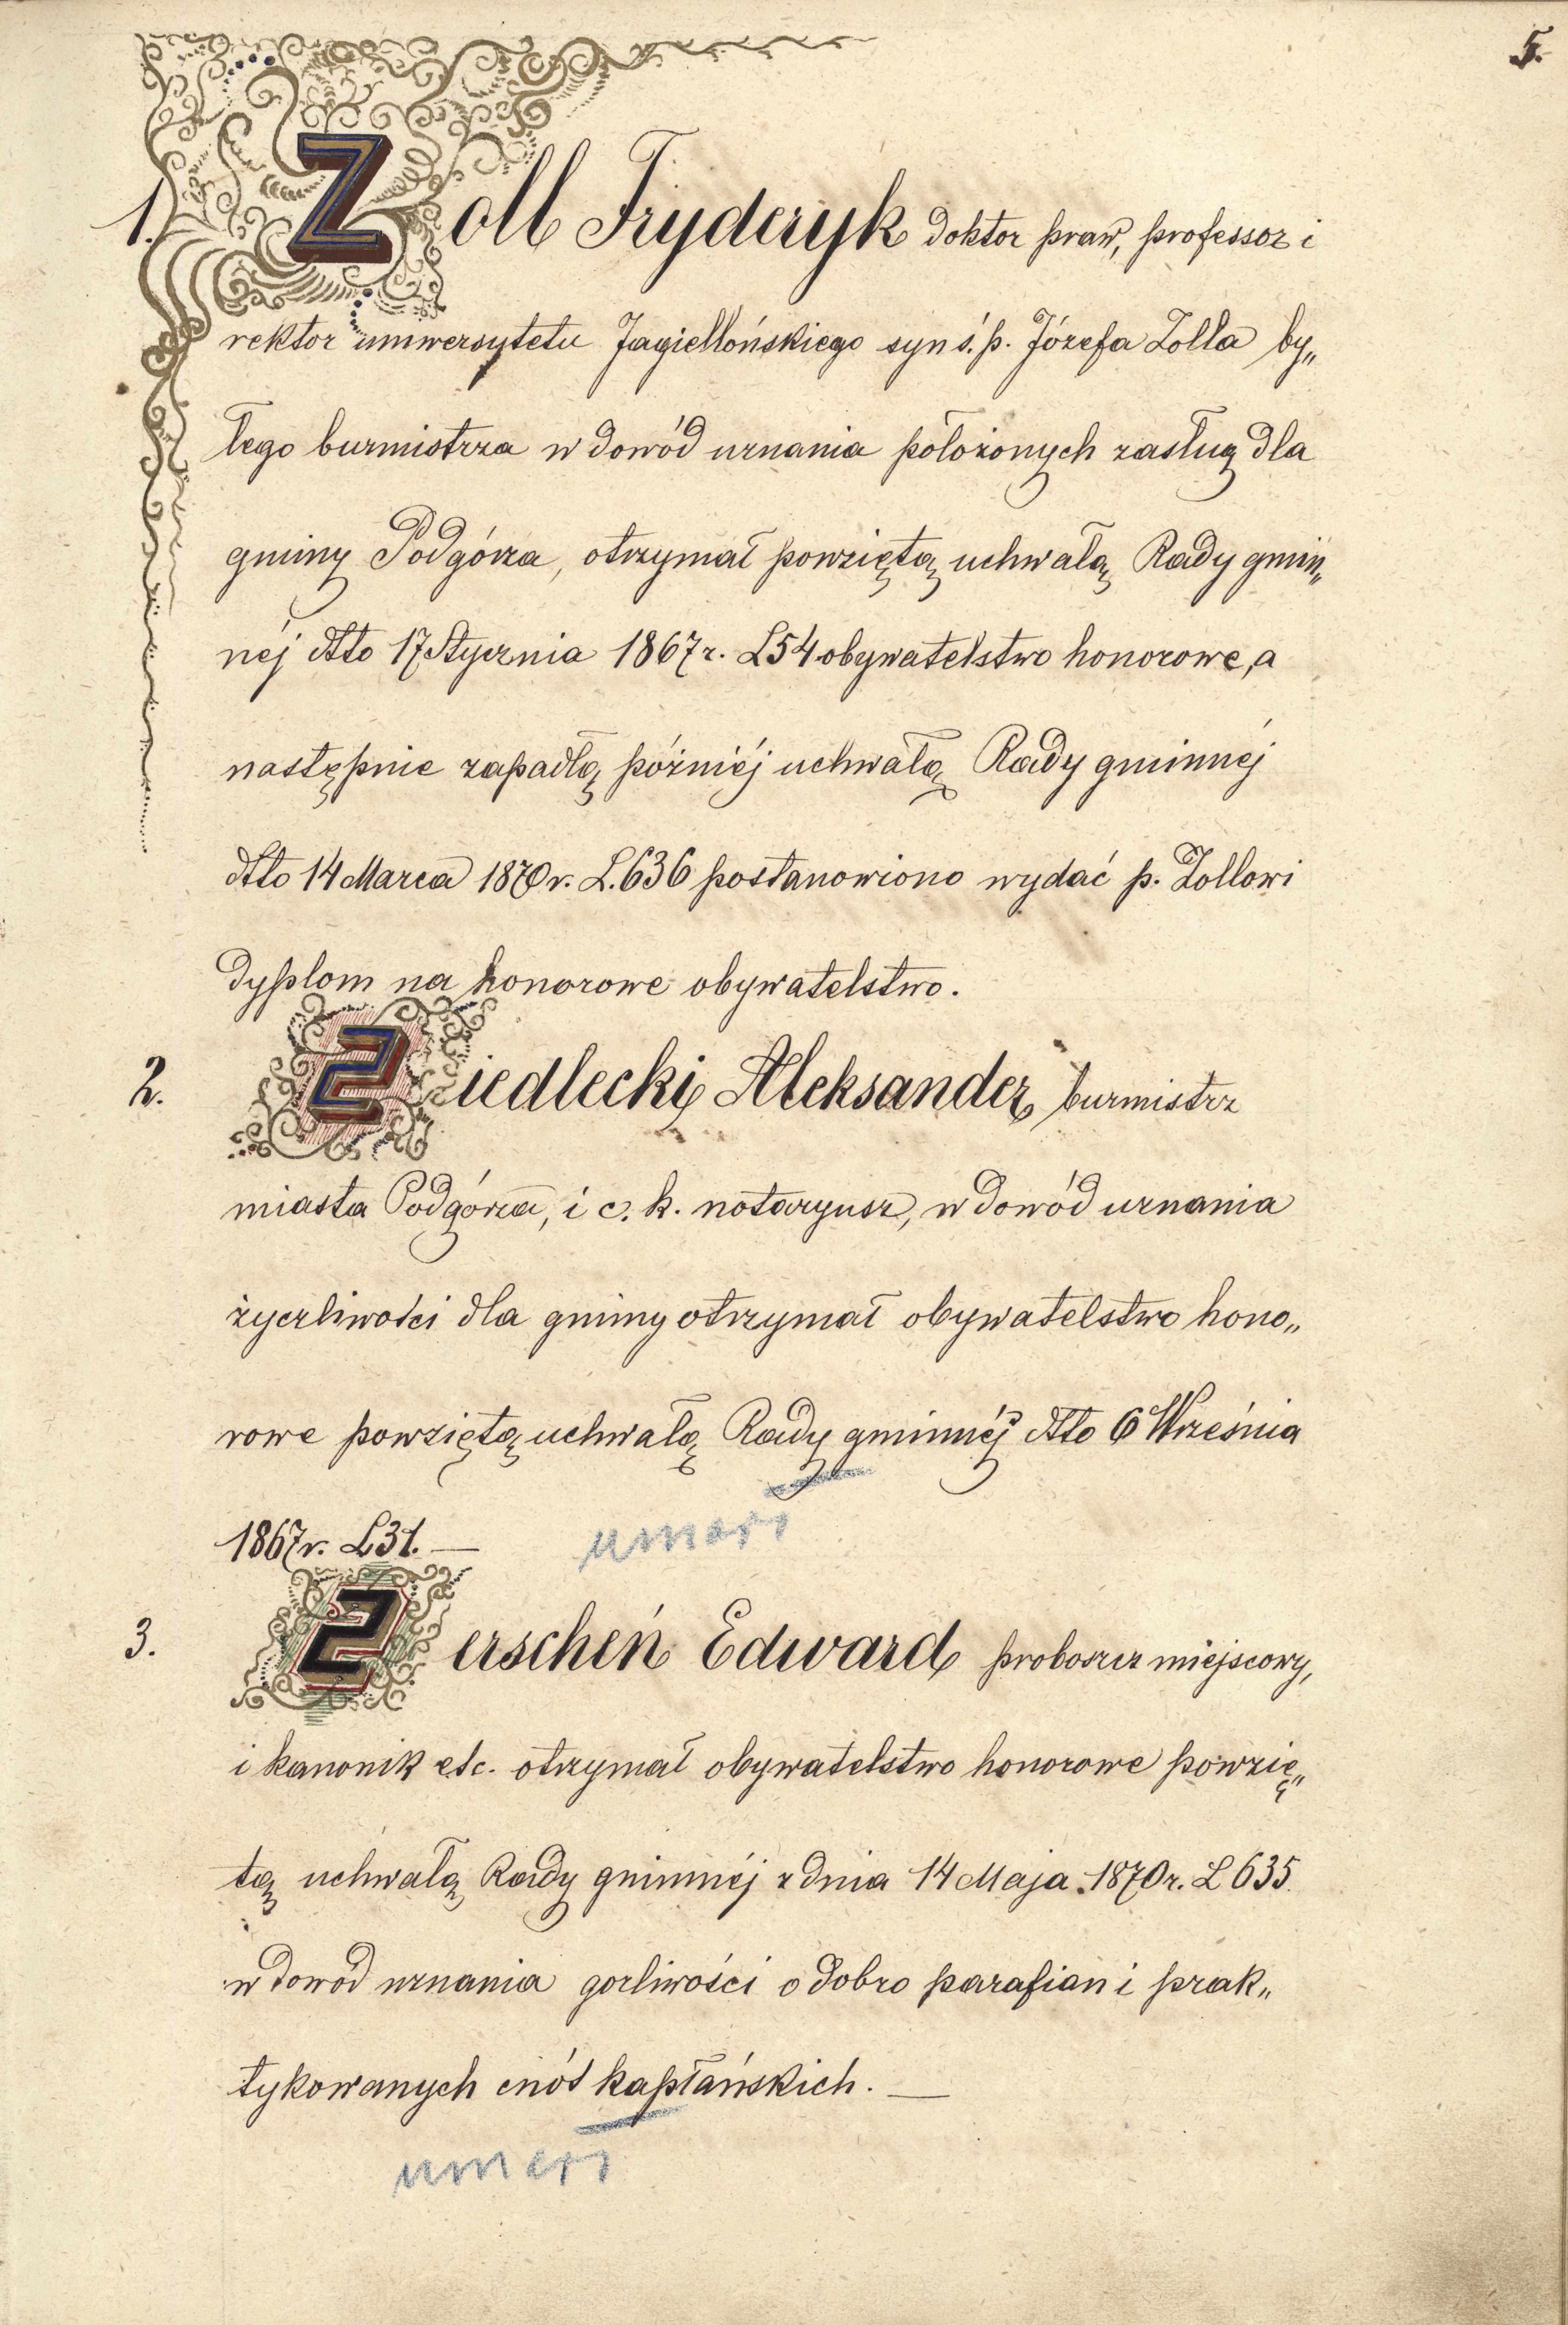 5.
1. Zoll Fryderyk doktor praw, professor i
rektor uniwersytetu Jagiellońskiego syn ś.p. Józefa Zolla by„
łego burmistrza w dowód uznania położonych zasług dla
gminy Podgórza, otrzymał powziętą uchwałą Rady gmin„
néj dtto 17 Stycznia 1867 r. L 54 obywatelstwo honorowe, a
następnie zapadłą późniéj uchwałą Rady gminnéj
dtto 14 Marca 1870 r. L. 636 postanowiono wydać p. Zollowi
dyplom na honorowe obywatelstwo.
2. Ziedlecki Aleksander burmistrz
miasta Podgórza, i c. k. notaryusz, w dowód uznania
życzliwości dla gminy otrzymał obywatelstwo hono„
rowe powziętą uchwałą Rady gminnéj dtto 6 Września
1867 r. L 31. —
umarł
3. Zerscheń Edward proboszcz miejscowy,
i kanonik etc. otrzymał obywatelstwo honorowe powzię„
tą uchwałą Rady gminnéj z dnia 14 Maja 1870 r. L 635.
w dowód uznania gorliwości o dobro parafian i prak„
tykowanych cnót kapłańskich. —
umarł